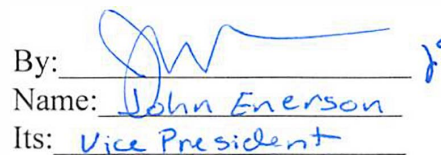 By:
Name: John Enerson
Its: Vice President